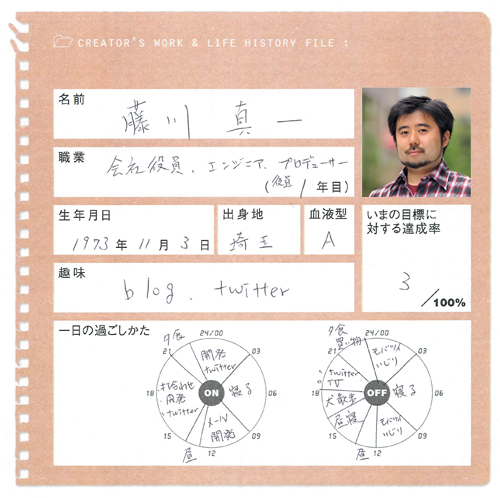 CREATOR'S WORK & LIFE HISTORY FILE :
名前
藤川 真一
職業
会社役員、エンジニア、プロデューサー
(役員 1年目)
生年月日
1973年 11月 3日
出身地
埼玉
血液型
A
いまの目標に
対する達成率
3/100%
趣味
blog、twitter
一日の過ごしかた
夕食
24/00
21
03
開発
twitter
打合わせ
開発
twitter
18
ON
寝る
06
メール
開発
15
09
昼
12
夕食
買い物
24/00
21
03
モバツイ
いじり
twitter
TV
18
犬散歩
OFF
寝る
06
昼寝
モバツイ
いじり
15
09
昼
12